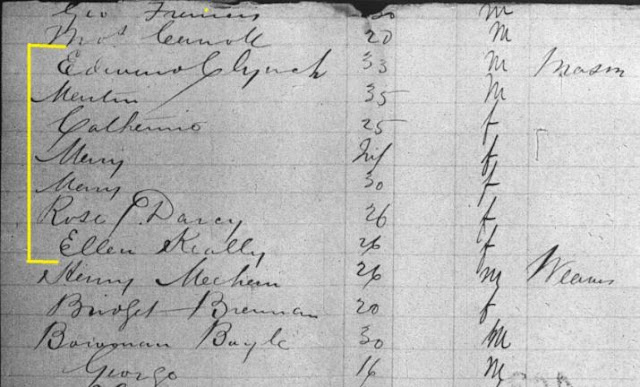 Geo Francis M
Thos Carroll 20 M
Edward Clynch 33 M Mason
Martin 35 M
Catherine 25 f
Mary Inf f
Mary 30 f
Rose J. Darcy 26 f
Ellen Keally 26 f
Henry Mechem 26 M Weaver
Bridget Brennan 20 f
Bowman Boyle 30 M
George 16 M